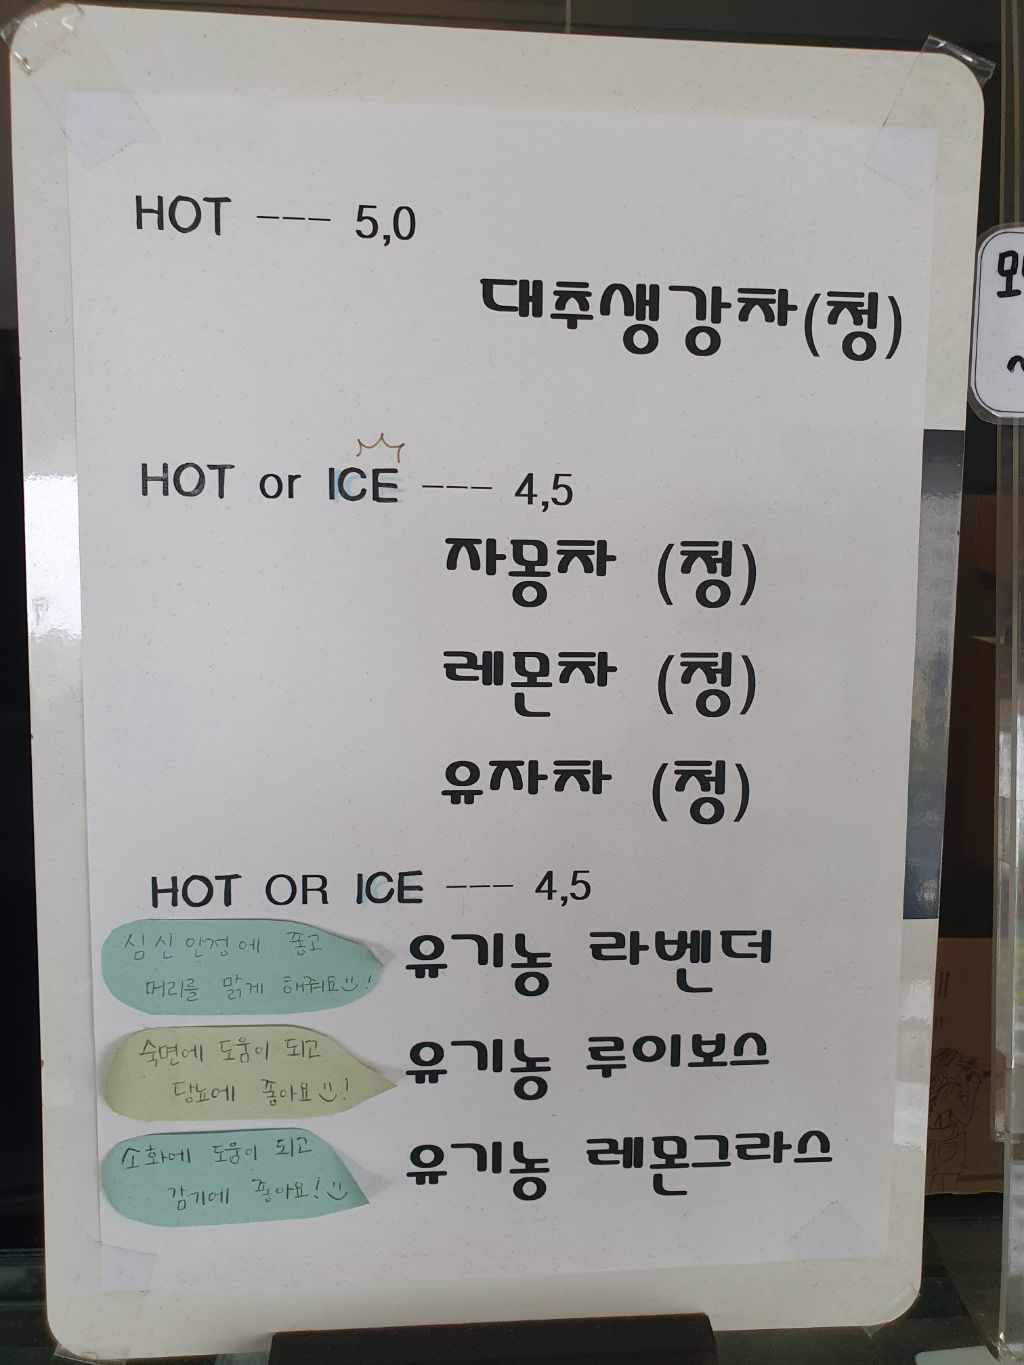 HOT --- 5,0
대추생강차(청)
HOT or ICE --- 4,5
자몽차 (청)
레몬차 (청)
유자차 (청)
HOT OR ICE --- 4,5
심신안정에 좋고
머리를 맑게 해줘요!
유기농 라벤더
숙면에 도움이 되고
당뇨에 좋아요!
유기농 루이보스
소화에 도움이 되고
감기에 좋아요!
유기농 레몬그라스